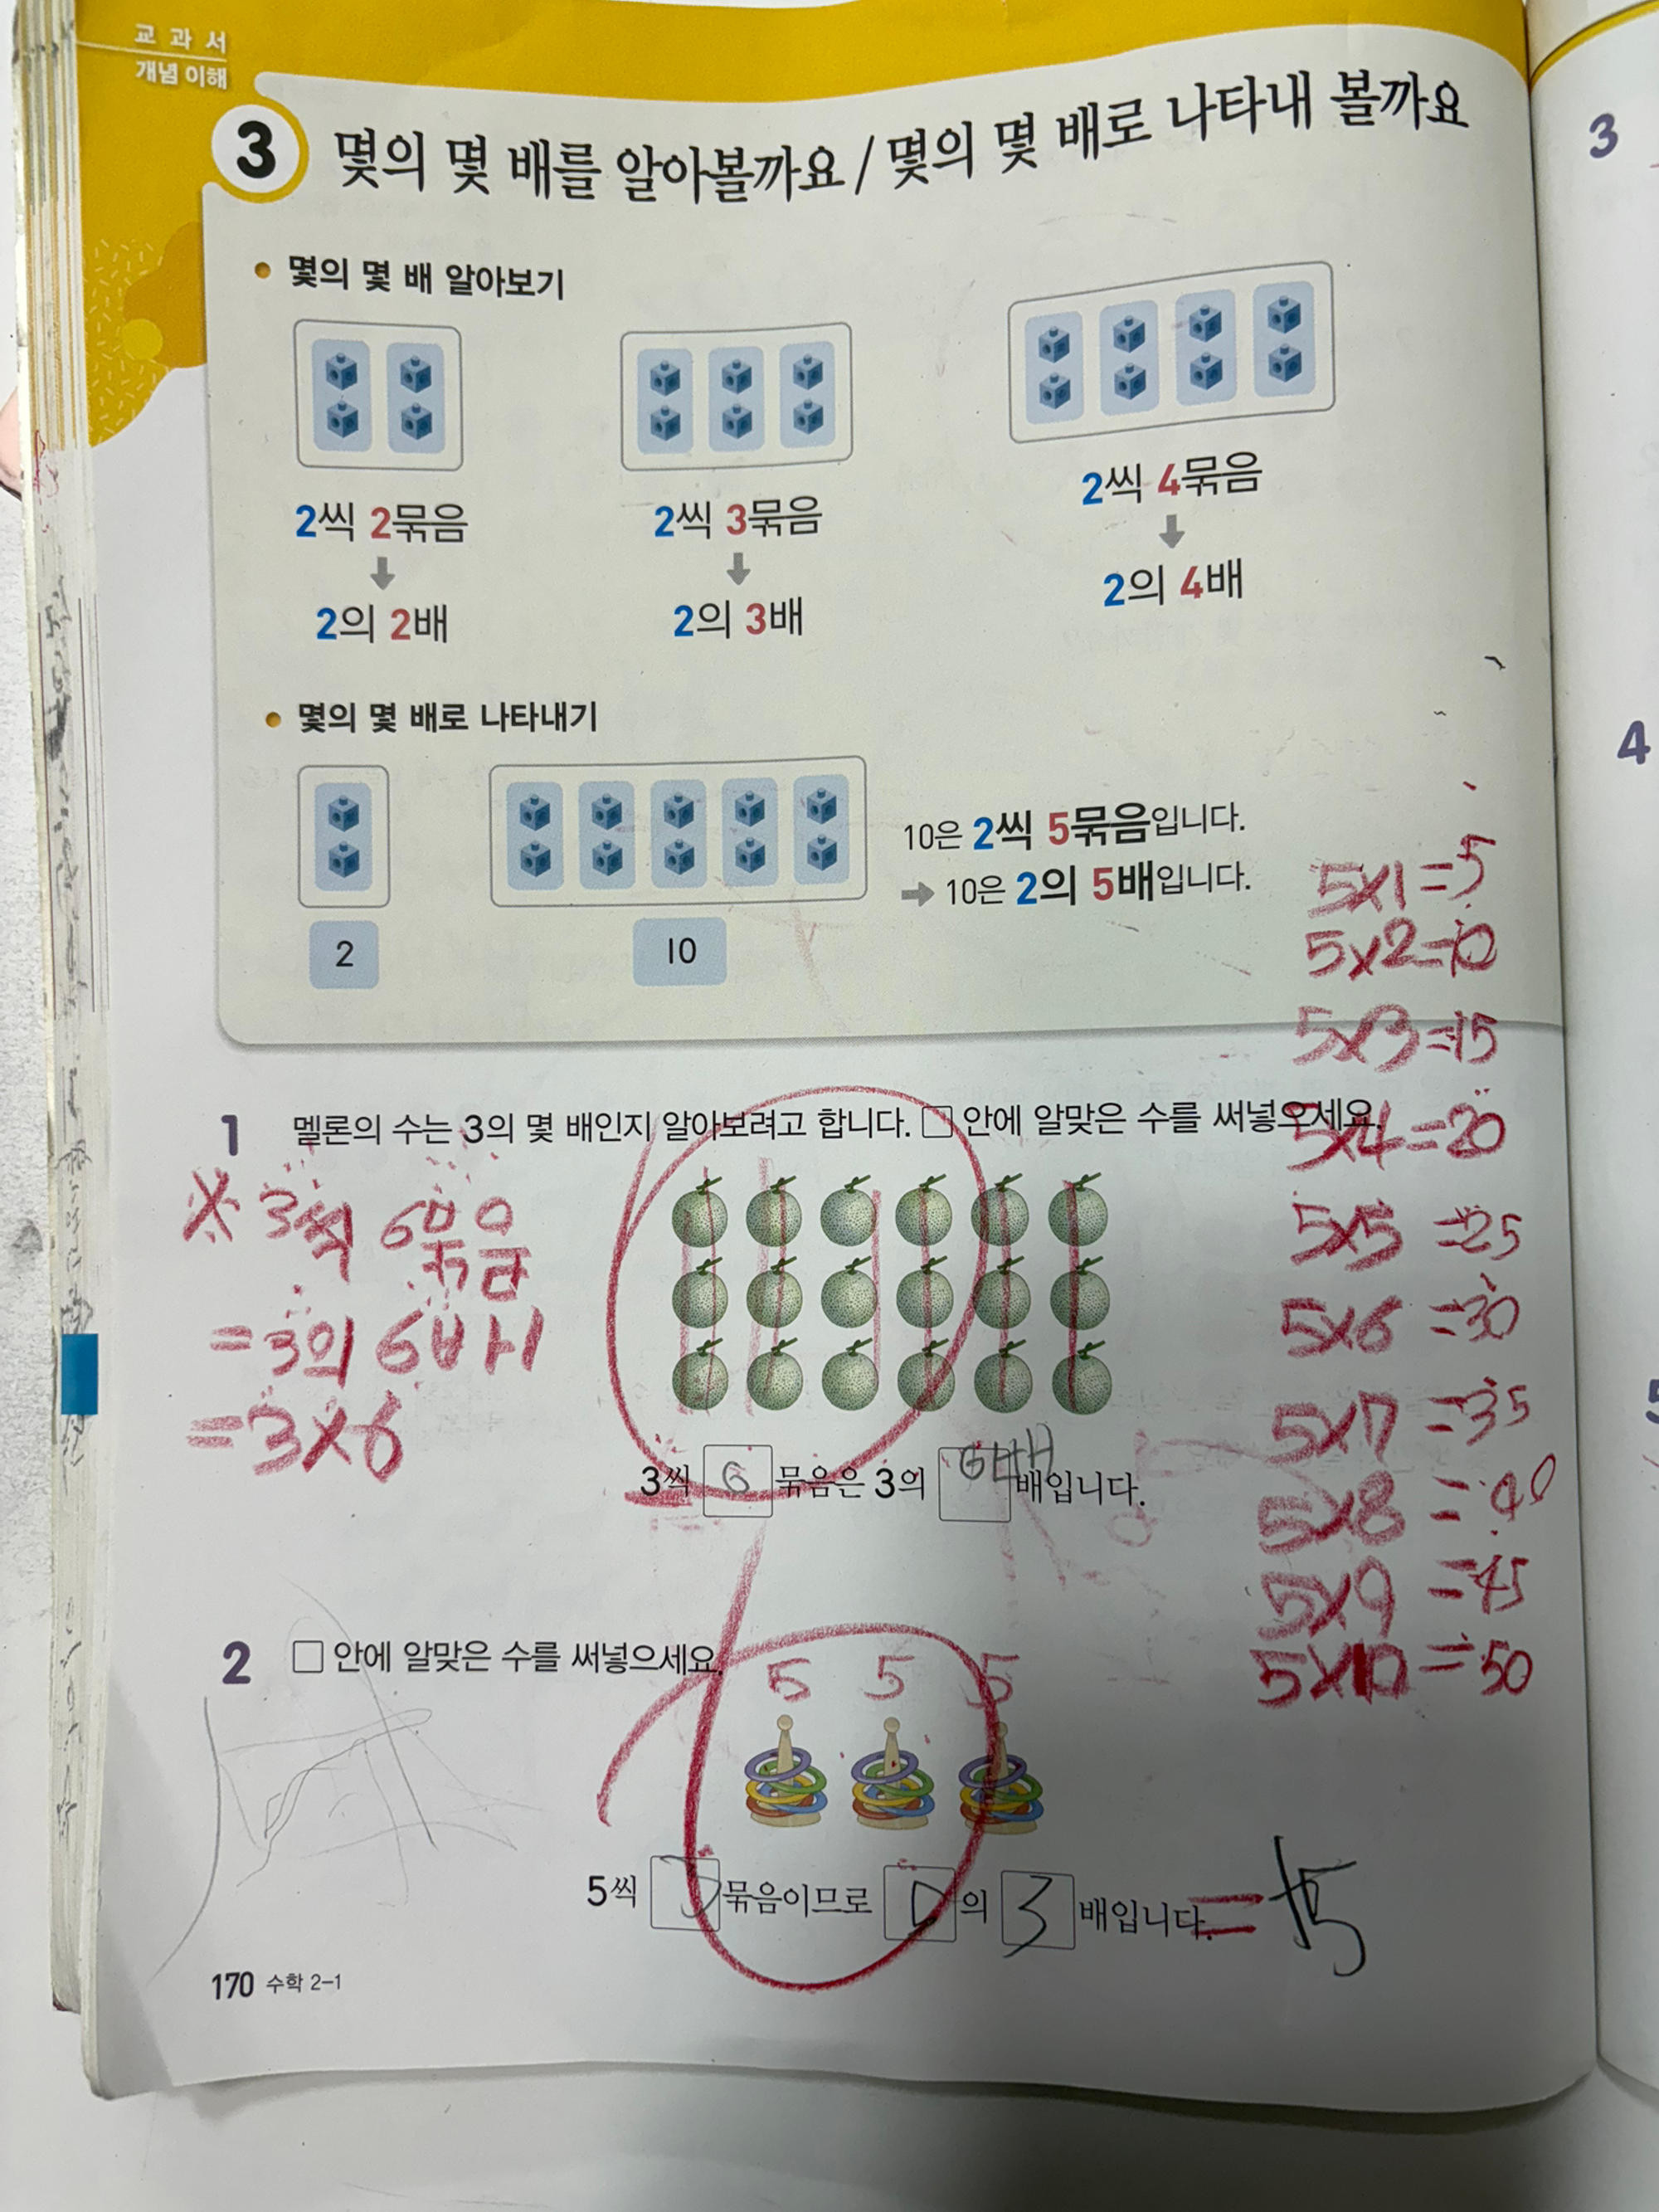 교과서
개념 이해
3 몇의 몇 배를 알아볼까요 / 몇의 몇 배로 나타내 볼까요
• 몇의 몇 배 알아보기
2씩 2묶음
2씩 3묶음
2씩 4묶음
2의 2배
2의 3배
2의 4배
• 몇의 몇 배로 나타내기
10은 2씩 5묶음입니다.
➡ 10은 2의 5배입니다.
2
10
5×1=5
5×2=10
5×3=15
5×4=20
5×5=25
5×6=30
5×7=35
5×8=40
5×9=45
5×10=50
1 멜론의 수는 3의 몇 배인지 알아보려고 합니다. □ 안에 알맞은 수를 써넣으세요.
※ 3씩 6묶음
=3의 6배
=3×6
3씩 6 묶음은 3의 6배 배입니다.
2 □ 안에 알맞은 수를 써넣으세요.
5 5 5
5씩 묶음이므로 의 3 배입니다. = 15
170 수학 2-1
3
4
5